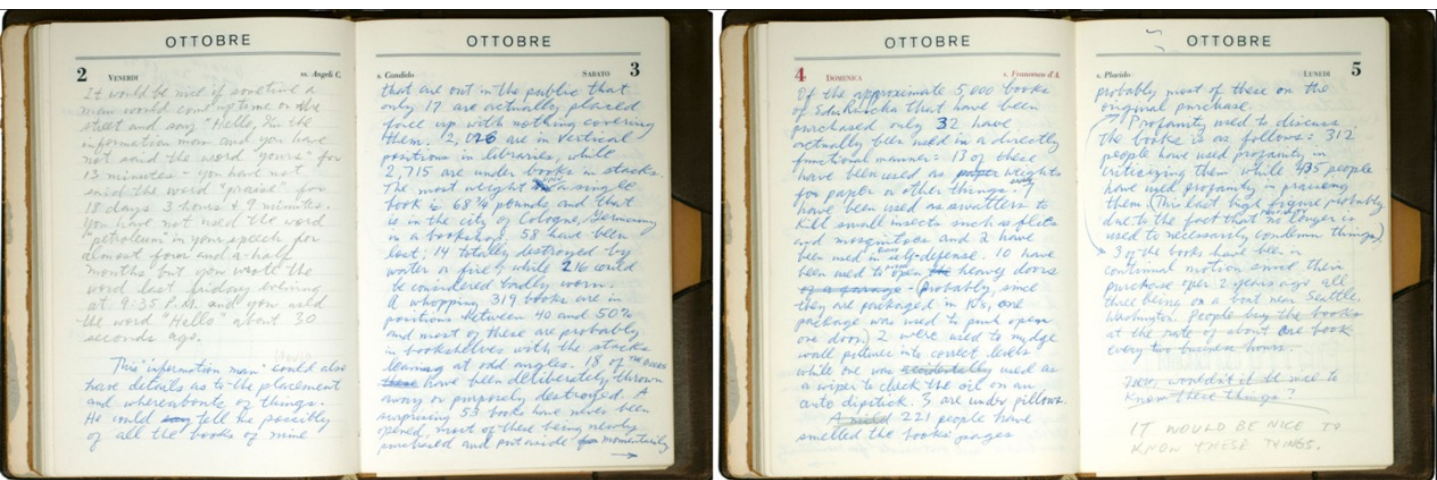 OTTOBRE
2 VENERDI ss. Angeli C.
It would be nice if sometime a
man would come up to me on the
street and say "Hello, I'm the
information man and you have
not said the word "yours" for
13 minutes - you have not
said the word "praise" for
18 days 3 hours & 9 minutes.
You have not used the word
"petroleum" in your speech for
almost four and a-half
months but you wrote the
word last friday evening
at 9:35 P.M. and you used
the word "Hello" about 30
seconds ago.
This "information man" could also
have details as to the placement
and whereabouts of things.
He could say tell me possibly
of all the books of mine
OTTOBRE
s. Candido SABATO 3
that are out in the public that
only 17 are actually placed
face up with nothing covering
them. 2,026 are in vertical
positions in libraries, while
2,715 are under books in stacks.
The most weight on a single
book is 68 3/4 pounds and that
is in the city of Cologne, Germany
in a bookshop. 58 have been
lost; 14 totally destroyed by
water or fire; while 216 could
be considered badly worn.
A whopping 319 books are in
positions between 40 and 50%
and most of these are probably
in bookshelves with the stacks
leaning at odd angles. 18 of the books
these have been deliberately thrown
away or purposely destroyed. A
surprising 53 books have never been
opened, most of these being newly
purchased and put aside for momentarily
OTTOBRE
4 DOMENICA s. Francesco d'A.
Of the approximate 5,000 books
of Edw Ruscha that have been
purchased only 32 have
actually been used in a directly
functional manner: 13 of these
have been used as paper weights
for paper or other things. 7
have been used as swatters to
kill small insects such as flies
and mosquitoes and 2 have
been used in self-defense. 10 have
been used to push open heavy doors
of a garage - (Probably, since
they are packaged in 10's, one
package was used to push open
one door) 2 were used to nudge
wall pictures into correct levels
while one was accidentally used as
a wiper to check the oil on an
auto dipstick. 3 are under pillows.
221 people have
smelled the books' pages
OTTOBRE
s. Placido LUNEDI 5
probably most of these on the
original purchase.
Profanity used to discuss
the books is as follows: 312
people have used profanity in
criticizing them while 435 people
have used profanity in praising
them (This last high figure probably
due to the fact that profanity no longer is
used to necessarily condemn things)
3 of the books have been in
continual motion since their
purchase over 2 years ago all
three being on a boat near Seattle,
Washington. People buy the books
at the rate of about one book
every two business hours.
Now, wouldn't it be nice to
know these things?
IT WOULD BE NICE TO
KNOW THESE THINGS.